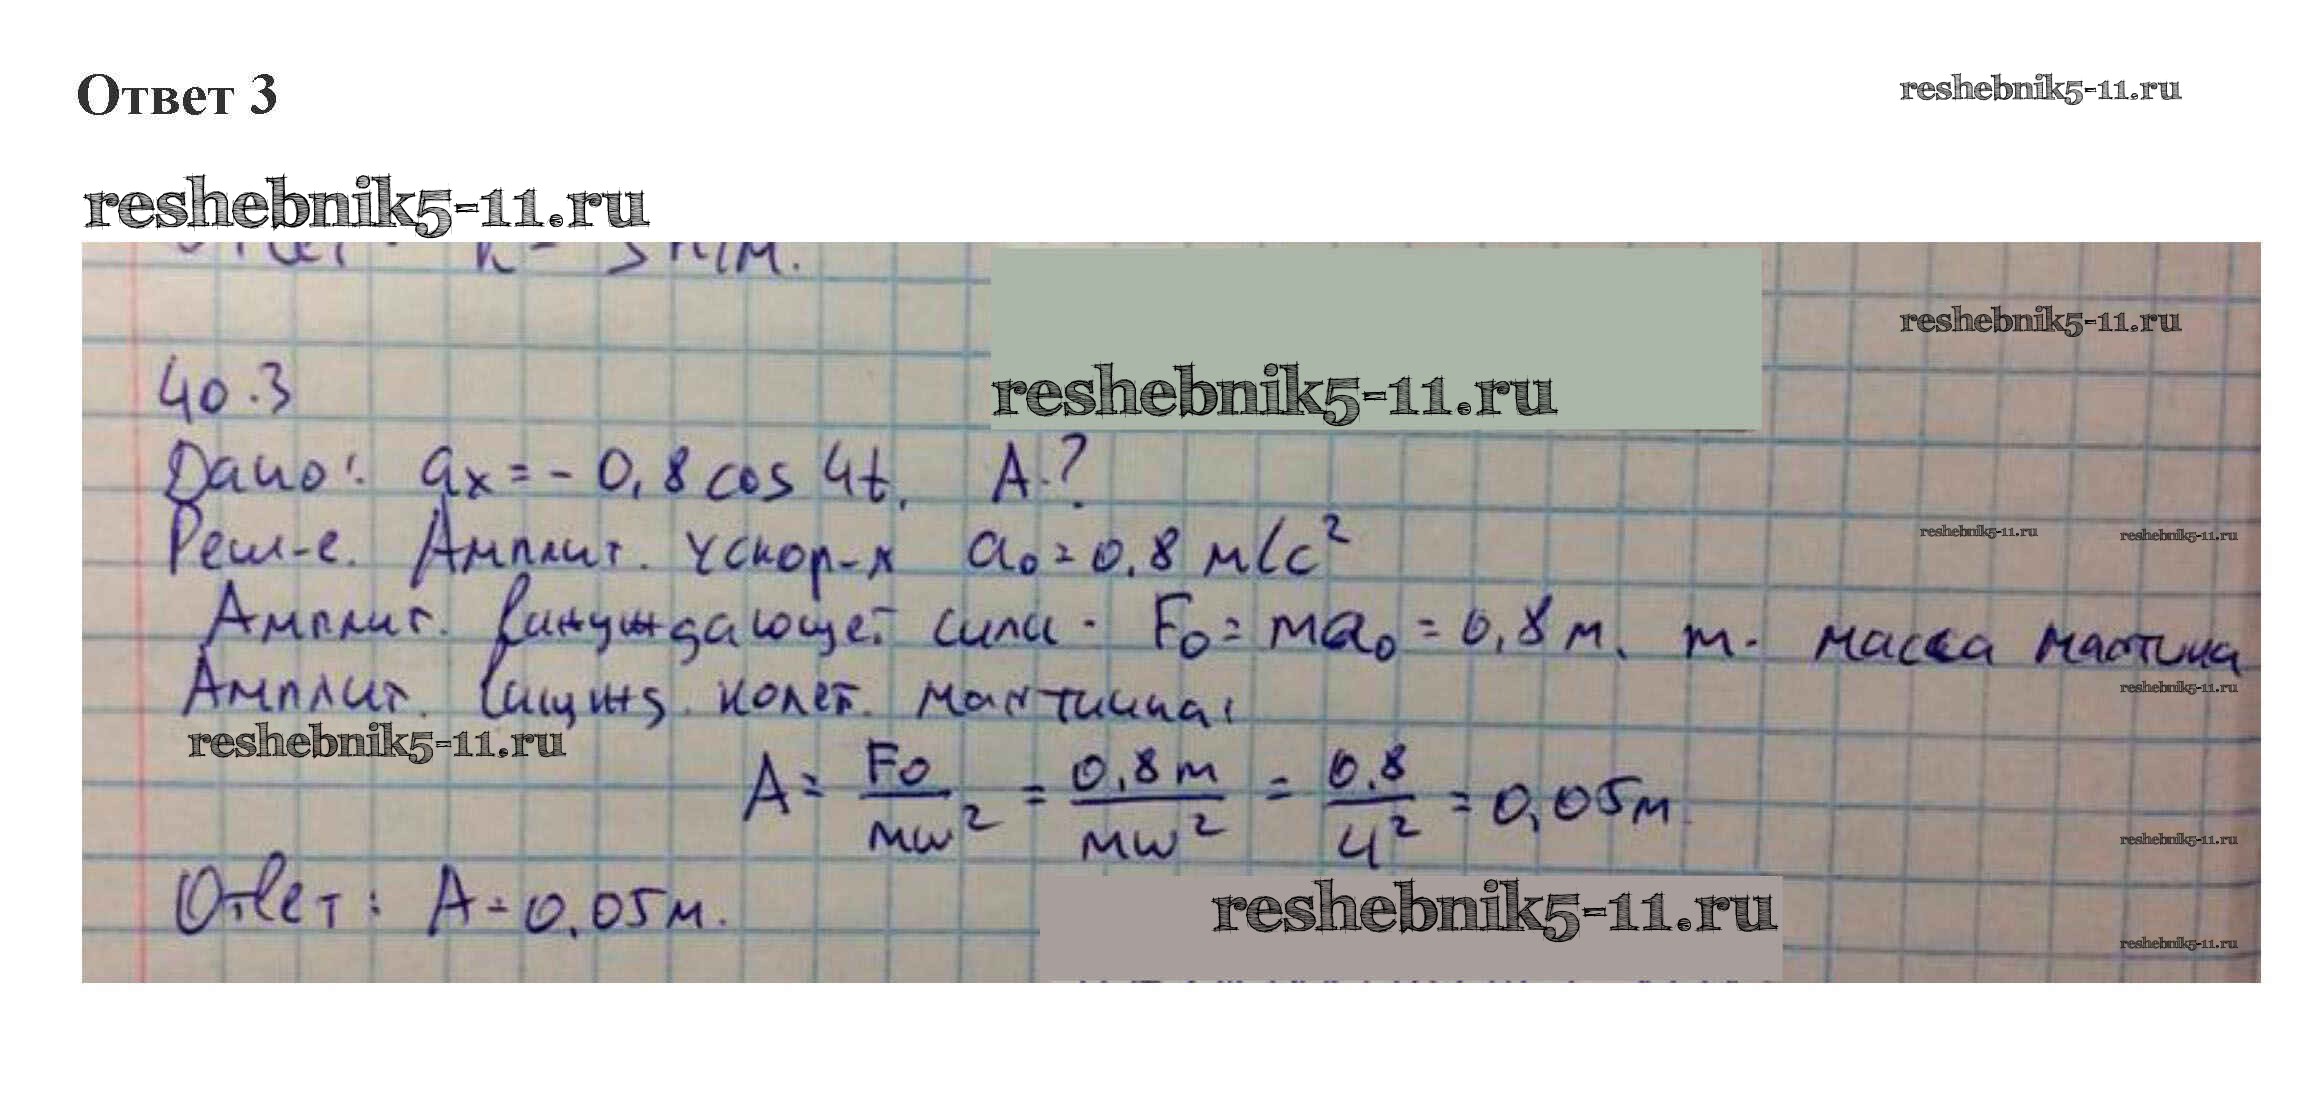 Ответ 3
reshebnik5-11.ru
reshebnik5-11.ru
reshebnik5-11.ru
reshebnik5-11.ru
40.3
Дано: aₓ = - 0,8 cos 4t, A-?
Реш-е. Амплит. ускор-я a₀ = 0.8 м/с²
reshebnik5-11.ru
reshebnik5-11.ru
Амплит. вынуждающей силы - F₀ = ma₀ = 0,8 m, m - масса маятника
Амплит. вынужд. колеб. маятника:
reshebnik5-11.ru
reshebnik5-11.ru
A = F₀/mω² = 0,8m/mω² = 0.8/4² = 0,05м.
reshebnik5-11.ru
Ответ: A = 0.05м.
reshebnik5-11.ru
reshebnik5-11.ru